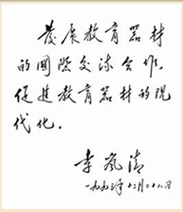 發展教育器材
的國際交流合作,
促進教育器材的現
代化。
李嵐清
一九九 年 月二十八日